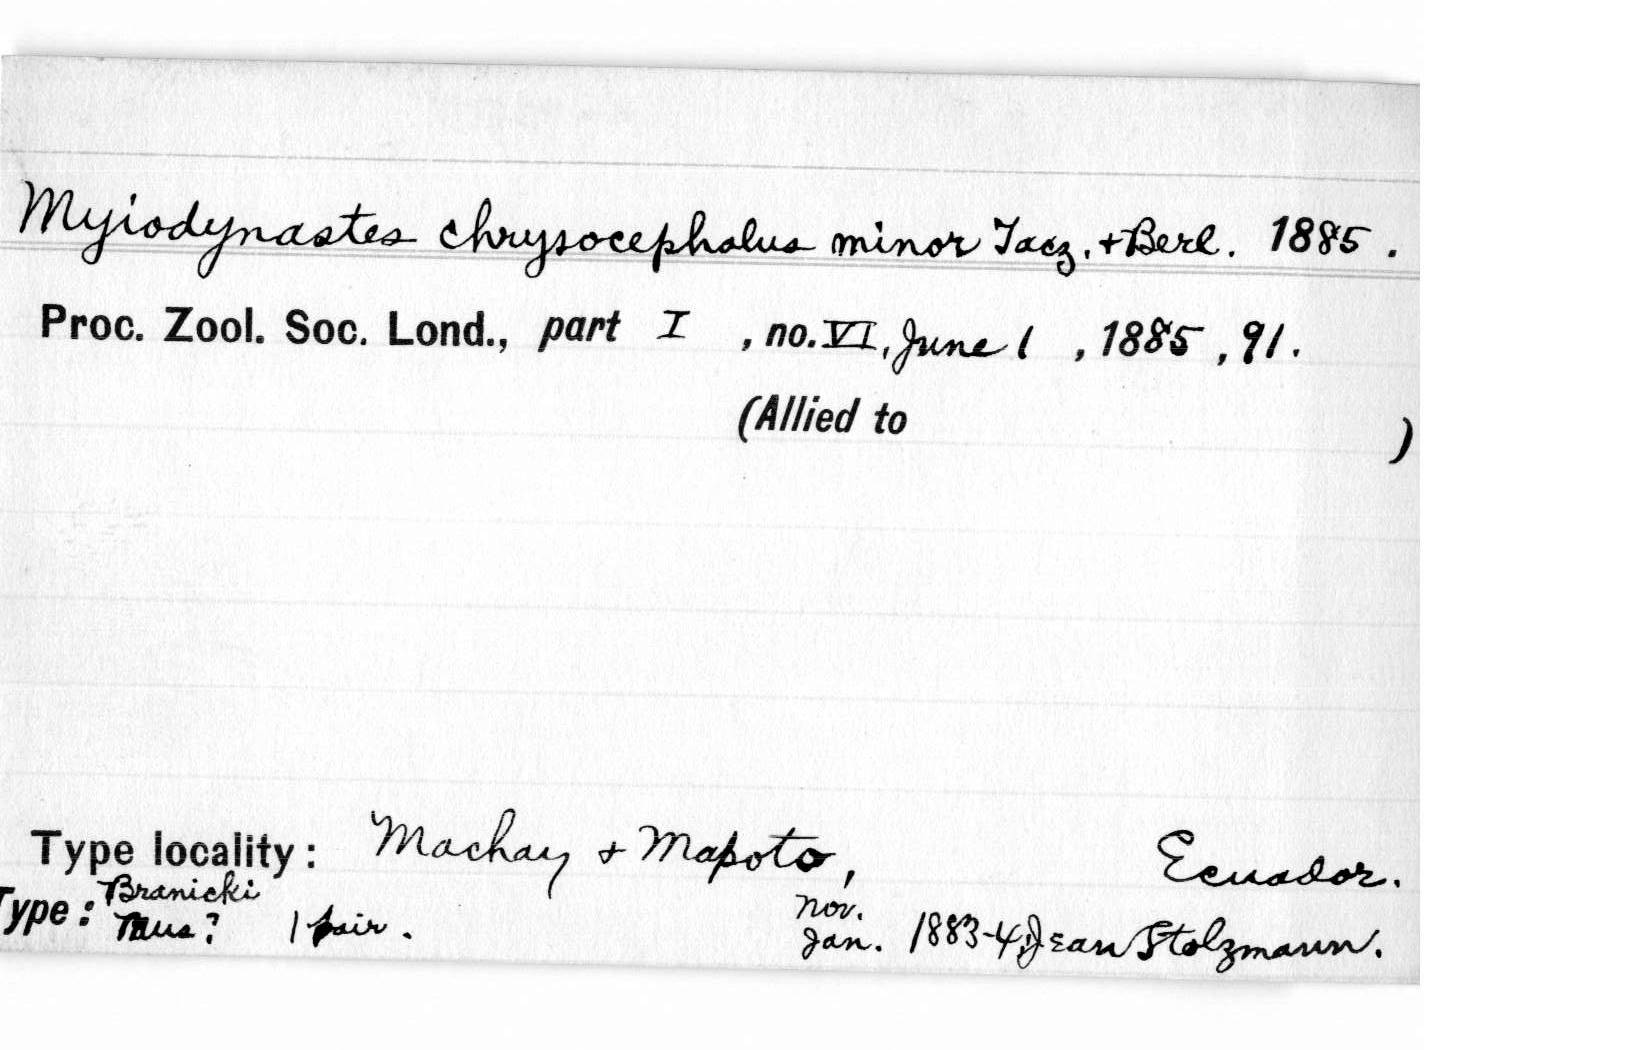 Myiodynastes chrysocephalus minor Tacz. + Berl. 1885.
Proc. Zool. Soc. Lond., part I, no. VI, June 1, 1885, 91.
(Allied to )
Type locality: Machay + Mapoto, Ecuador.
Branicki Nov.
Type: Mus? 1 pair. Jan. 1883-4, Jean Stolzmann.